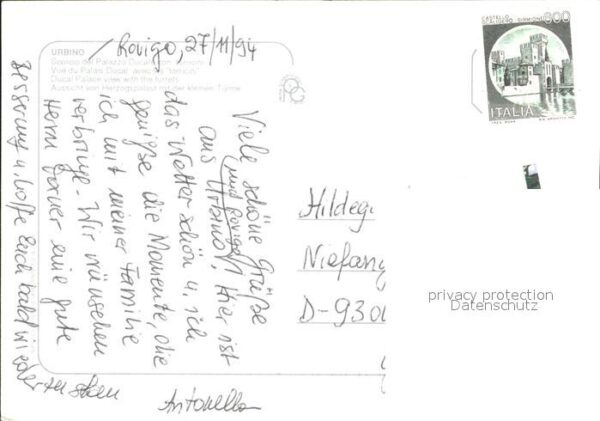 Rovigo, 27/11/94
URBINO
Scorcio del Palazzo Ducale con "torricini"
Vue du Palais Ducal avec les "torricini"
Ducal Palace view with the turrets
Aussicht von Herzogspalast mit der kleinen Türme
Viele schöne Grüße
aus Urbino (und Rovigo). Hier ist
das Wetter schön u. ich
genieße die Momente, die
ich mit meiner Familie
verbringe. Wir wünschen
Herrn Forner eine gute
Besserung u. hoffe Euch bald wiederzusehen
Antonella
CASTELLO SCALIGERO SIRMIONE
800
ITALIA
Hildeg
Niefang
D-930
privacy protection
Datenschutz